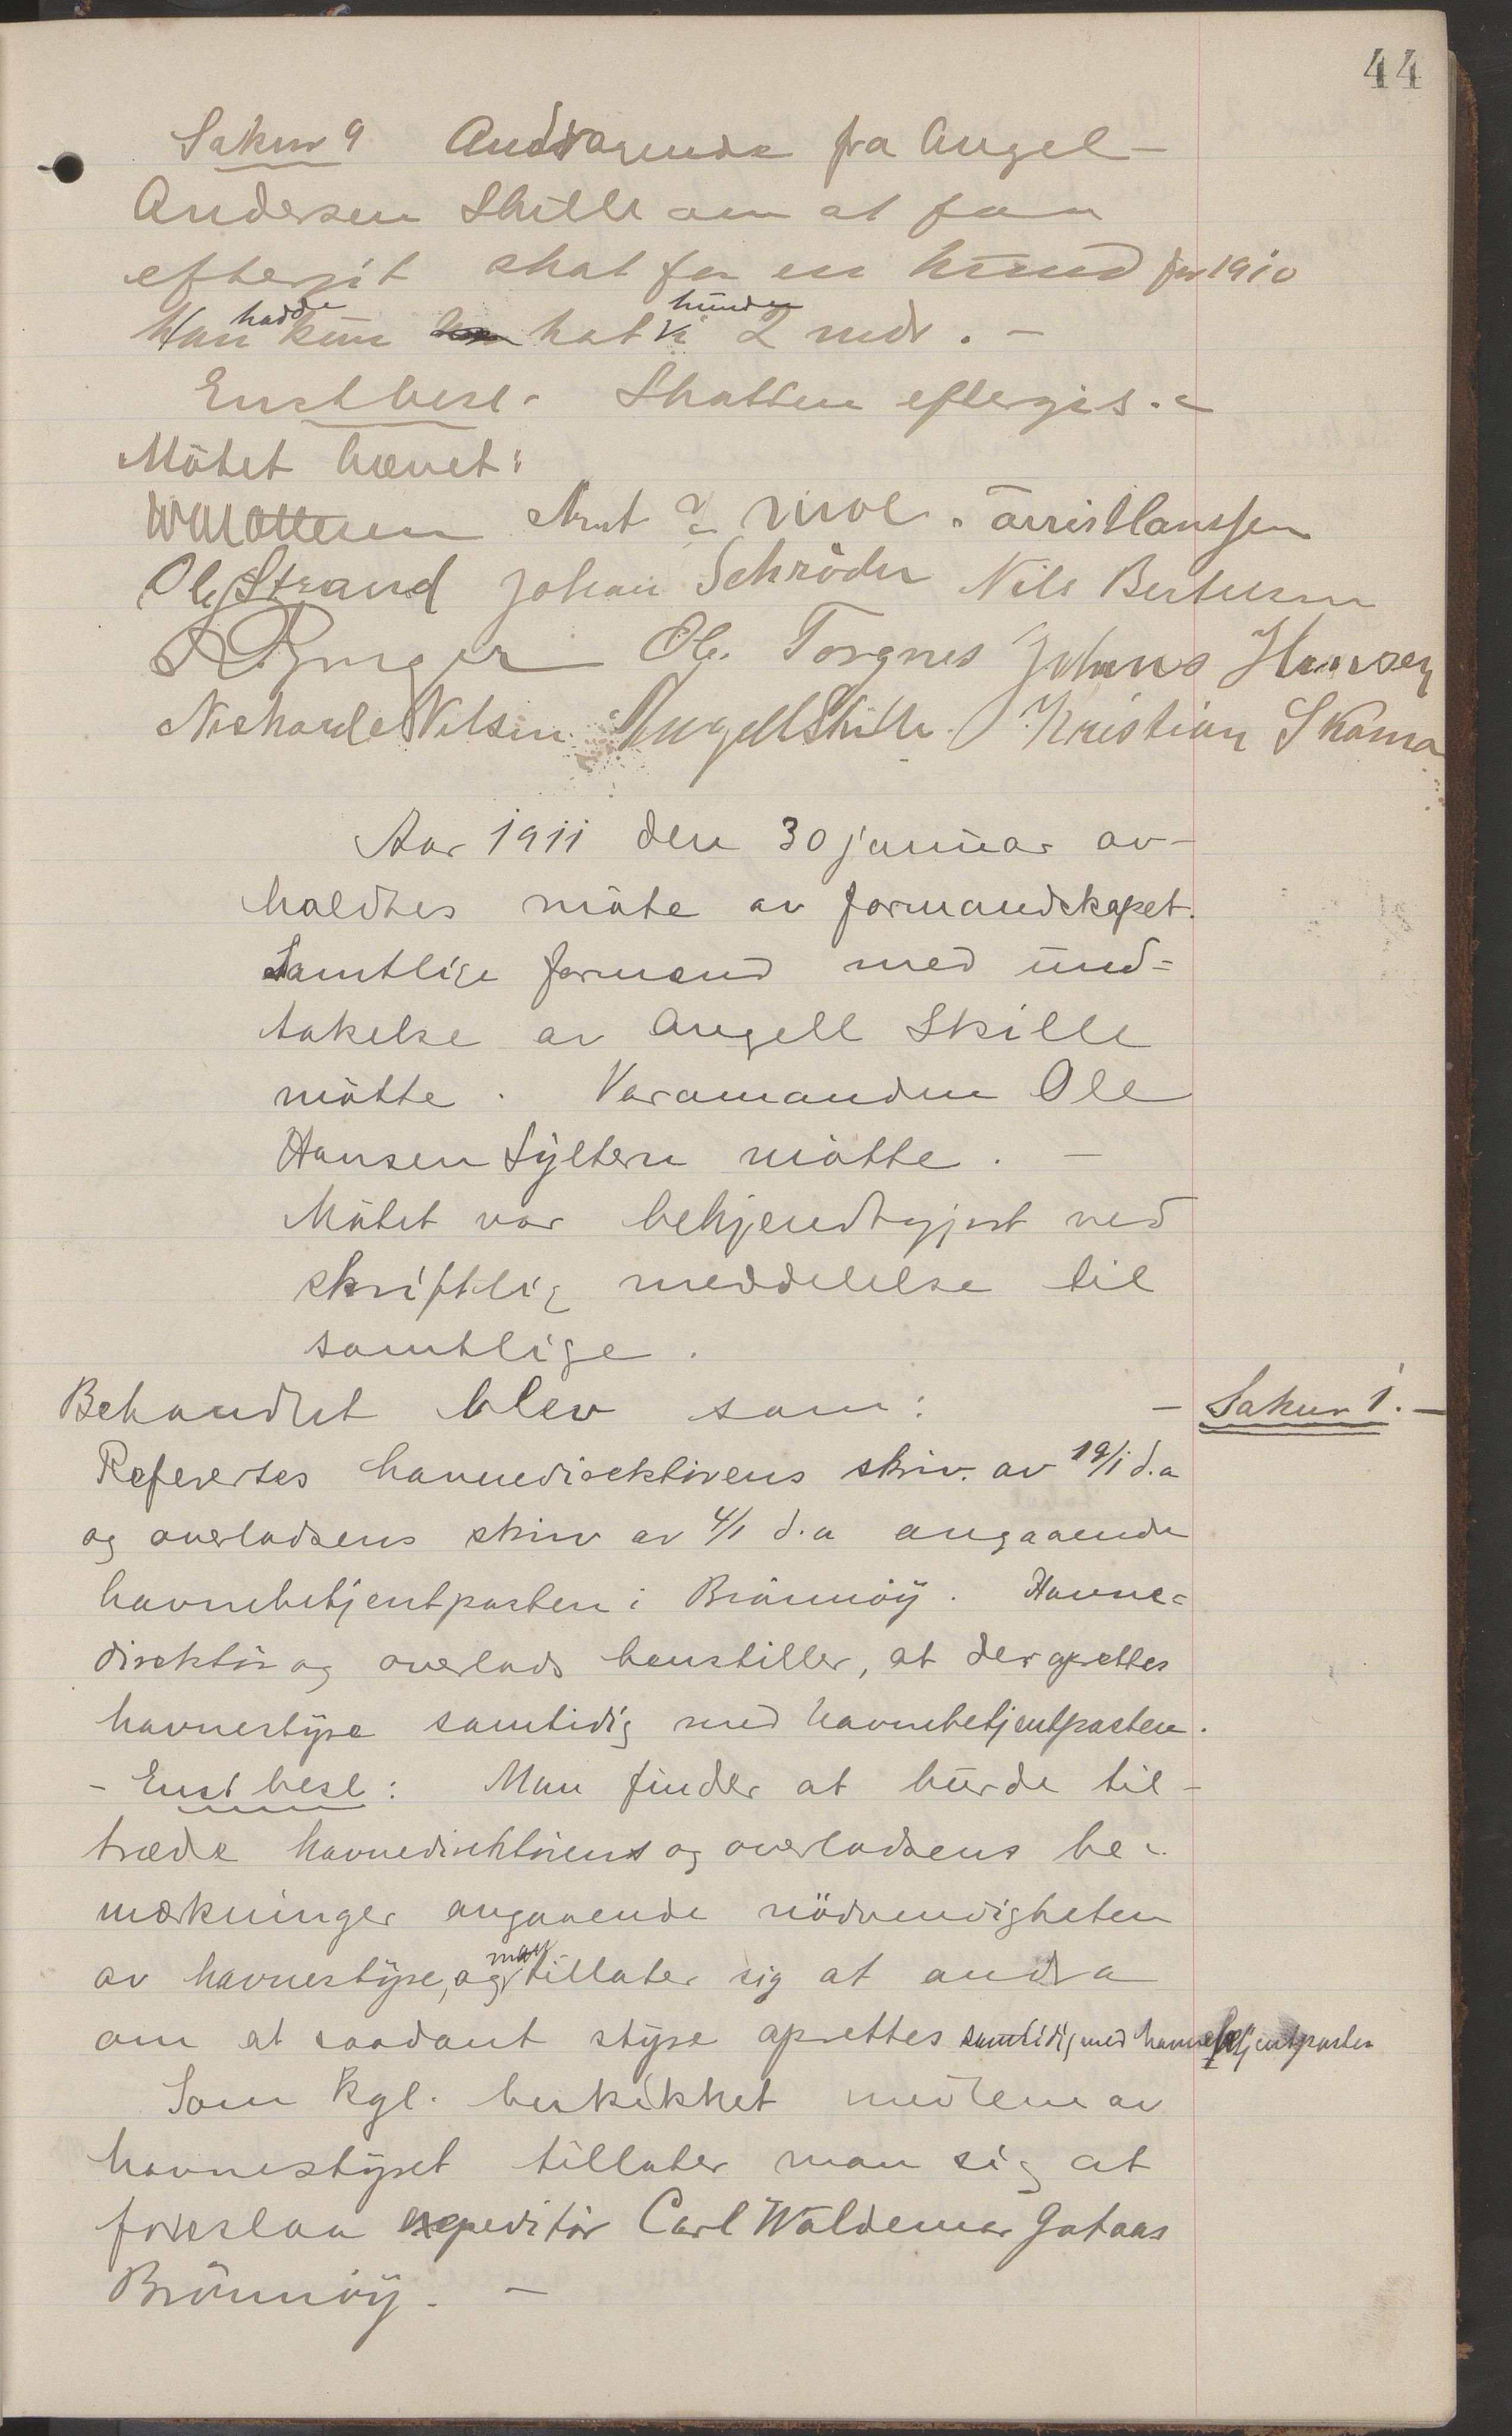 44
Saknr 9 Andragende fra Angel-
Andersen Skille om at faa
eftergit skat for en hund for 1910
Han hadde kun hat hunden i 2 mdr. -
Enst besl. Skatten eftergis. -
Møtet hævet:
Ole Strand Johan Schrøder Nils Bertusen
Ole Torgnes Johans Hansen
Nekhard Nilsen Angell Skille Kristian Skomo
Aar 1911 den 30 januar av-
holdtes møte av formandskapet.
Samtlige formænd med und=
takelse av Angell Skille
møtte. Varamanden Ole
Hansen Sylteren møtte. -
Møtet var bekjendtgjort ved
skriftlig meddelelse til
samtlige.
Behandlet blev som: - Saknr 1. -
Referertes havnedirektørens skriv. av 19/1 d.a
og overlodsens skriv av 4/1 d.a angaaende
havnebetjentposten i Brønnøy. Havne=
direktør og overlods henstiller, at der oprettes
havnestyre samtidig med havnebetjentposten.
- Enst besl: Man finder at burde til-
træde havnedirektørens og overlodsens be-
mærkninger angaaende nødvendigheten
av havnestyre, og man tillater sig at andra
om at saadant styre oprettes samtidig med havnebetjentposten
Som kgl. beskikket medlem av
havnestyret tillater man sig at
foreslaa expeditør Carl Waldemar Gataas
Brønnøy. -